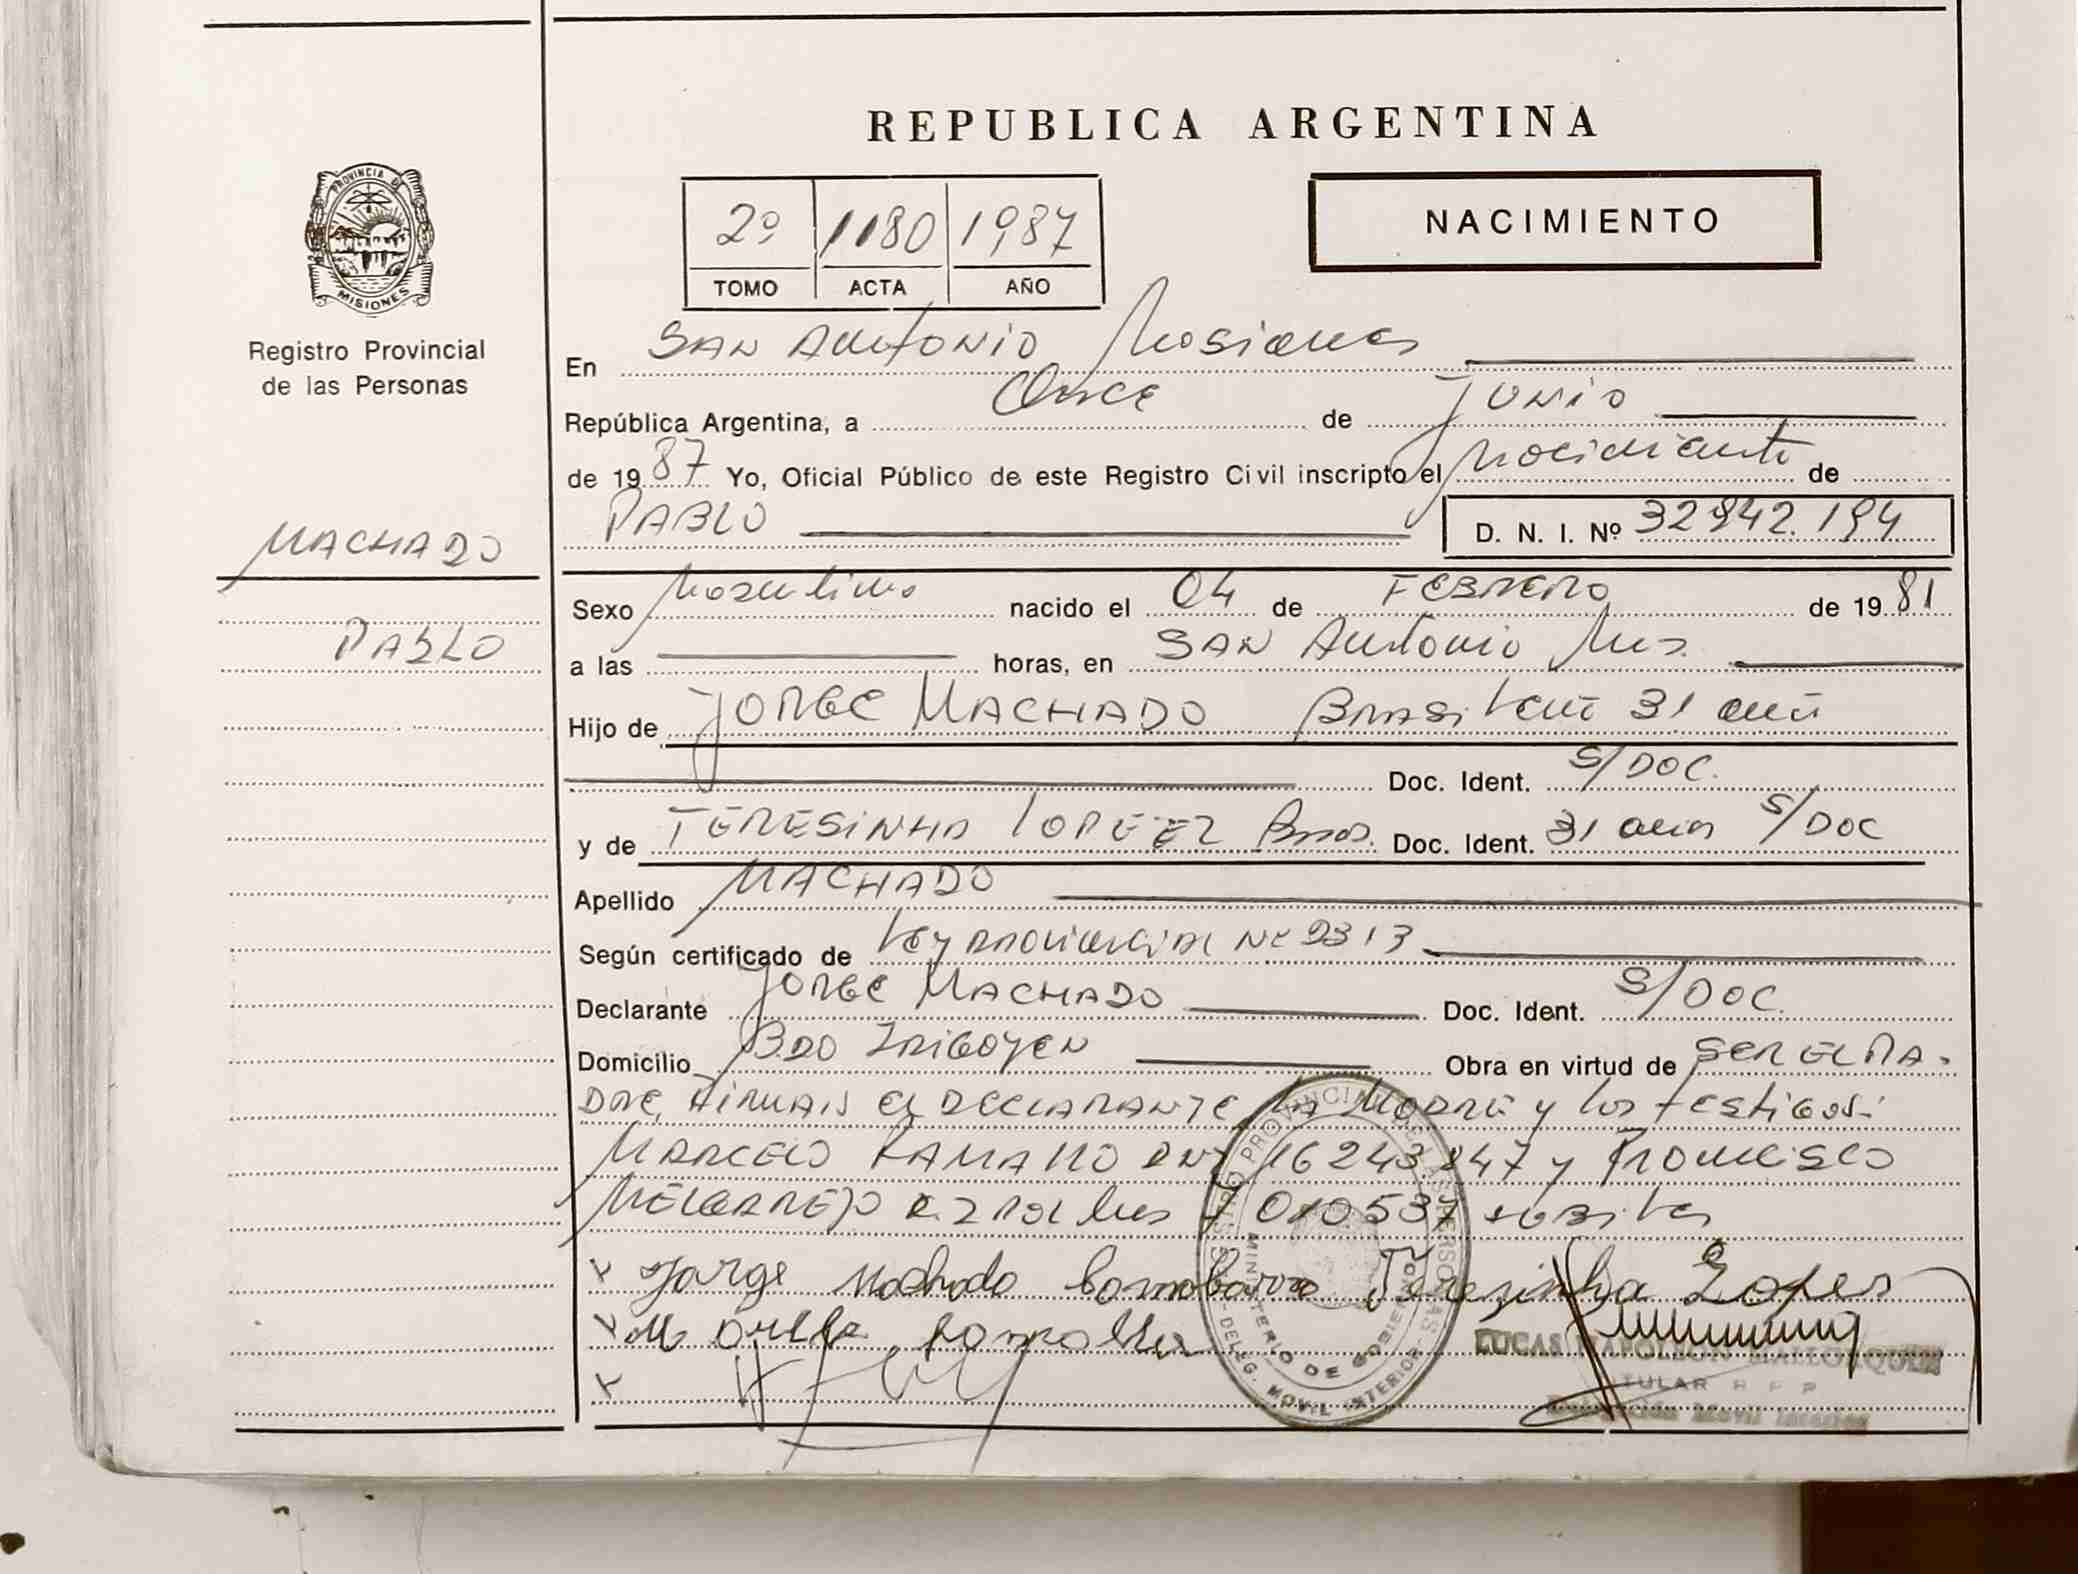 REPUBLICA ARGENTINA
PROVINCIA DE
MISIONES
Registro Provincial
de las Personas
2º 1180 1987
TOMO ACTA AÑO
NACIMIENTO
En SAN ANTONIO Misiones
República Argentina, a Once de JUNIO
de 1987 Yo, Oficial Público de este Registro Civil inscripto el Nacimiento de
PABLO D. N. I. Nº 32842.194
MACHADO
PABLO
Sexo Masculino nacido el 04 de FEBRERO de 1981
a las horas, en SAN Antonio Mns.
Hijo de JORGE MACHADO Brasileño 31 años
Doc. Ident. S/DOC.
y de TERESINHA LOPEZ Bras. Doc. Ident. 31 años S/DOC
Apellido MACHADO
Según certificado de Ley PROVINCIAL Nº 2313
Declarante JORGE MACHADO Doc. Ident. S/DOC.
Domicilio BDO IRIGOYEN Obra en virtud de SER EL PA-
DRE, FIRMAN EL DECLARANTE, LA MADRE y los testigos:
MARCELO DNI 16243.847 y FRANCISCO
MELGAREJO 7010537
Jorge Machado Terezinha Lopes
REGISTRO PROVINCIAL DE LAS PERSONAS
MINISTERIO DE GOBIERNO
DELEG. MOVIL INTERIOR
LUCAS NAPOLEON MALLORQUIN
TITULAR R P P
Delegación Movil Interior